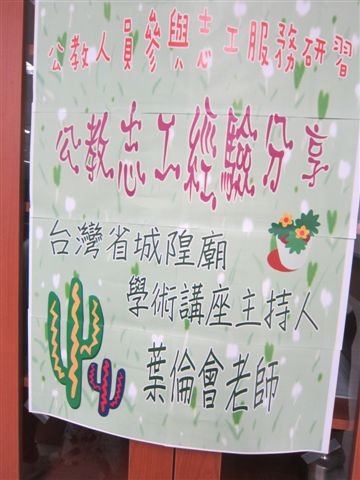 公教人員參與志工服務研習
公教志工經驗分享
台灣省城隍廟
學術講座主持人
葉倫會老師